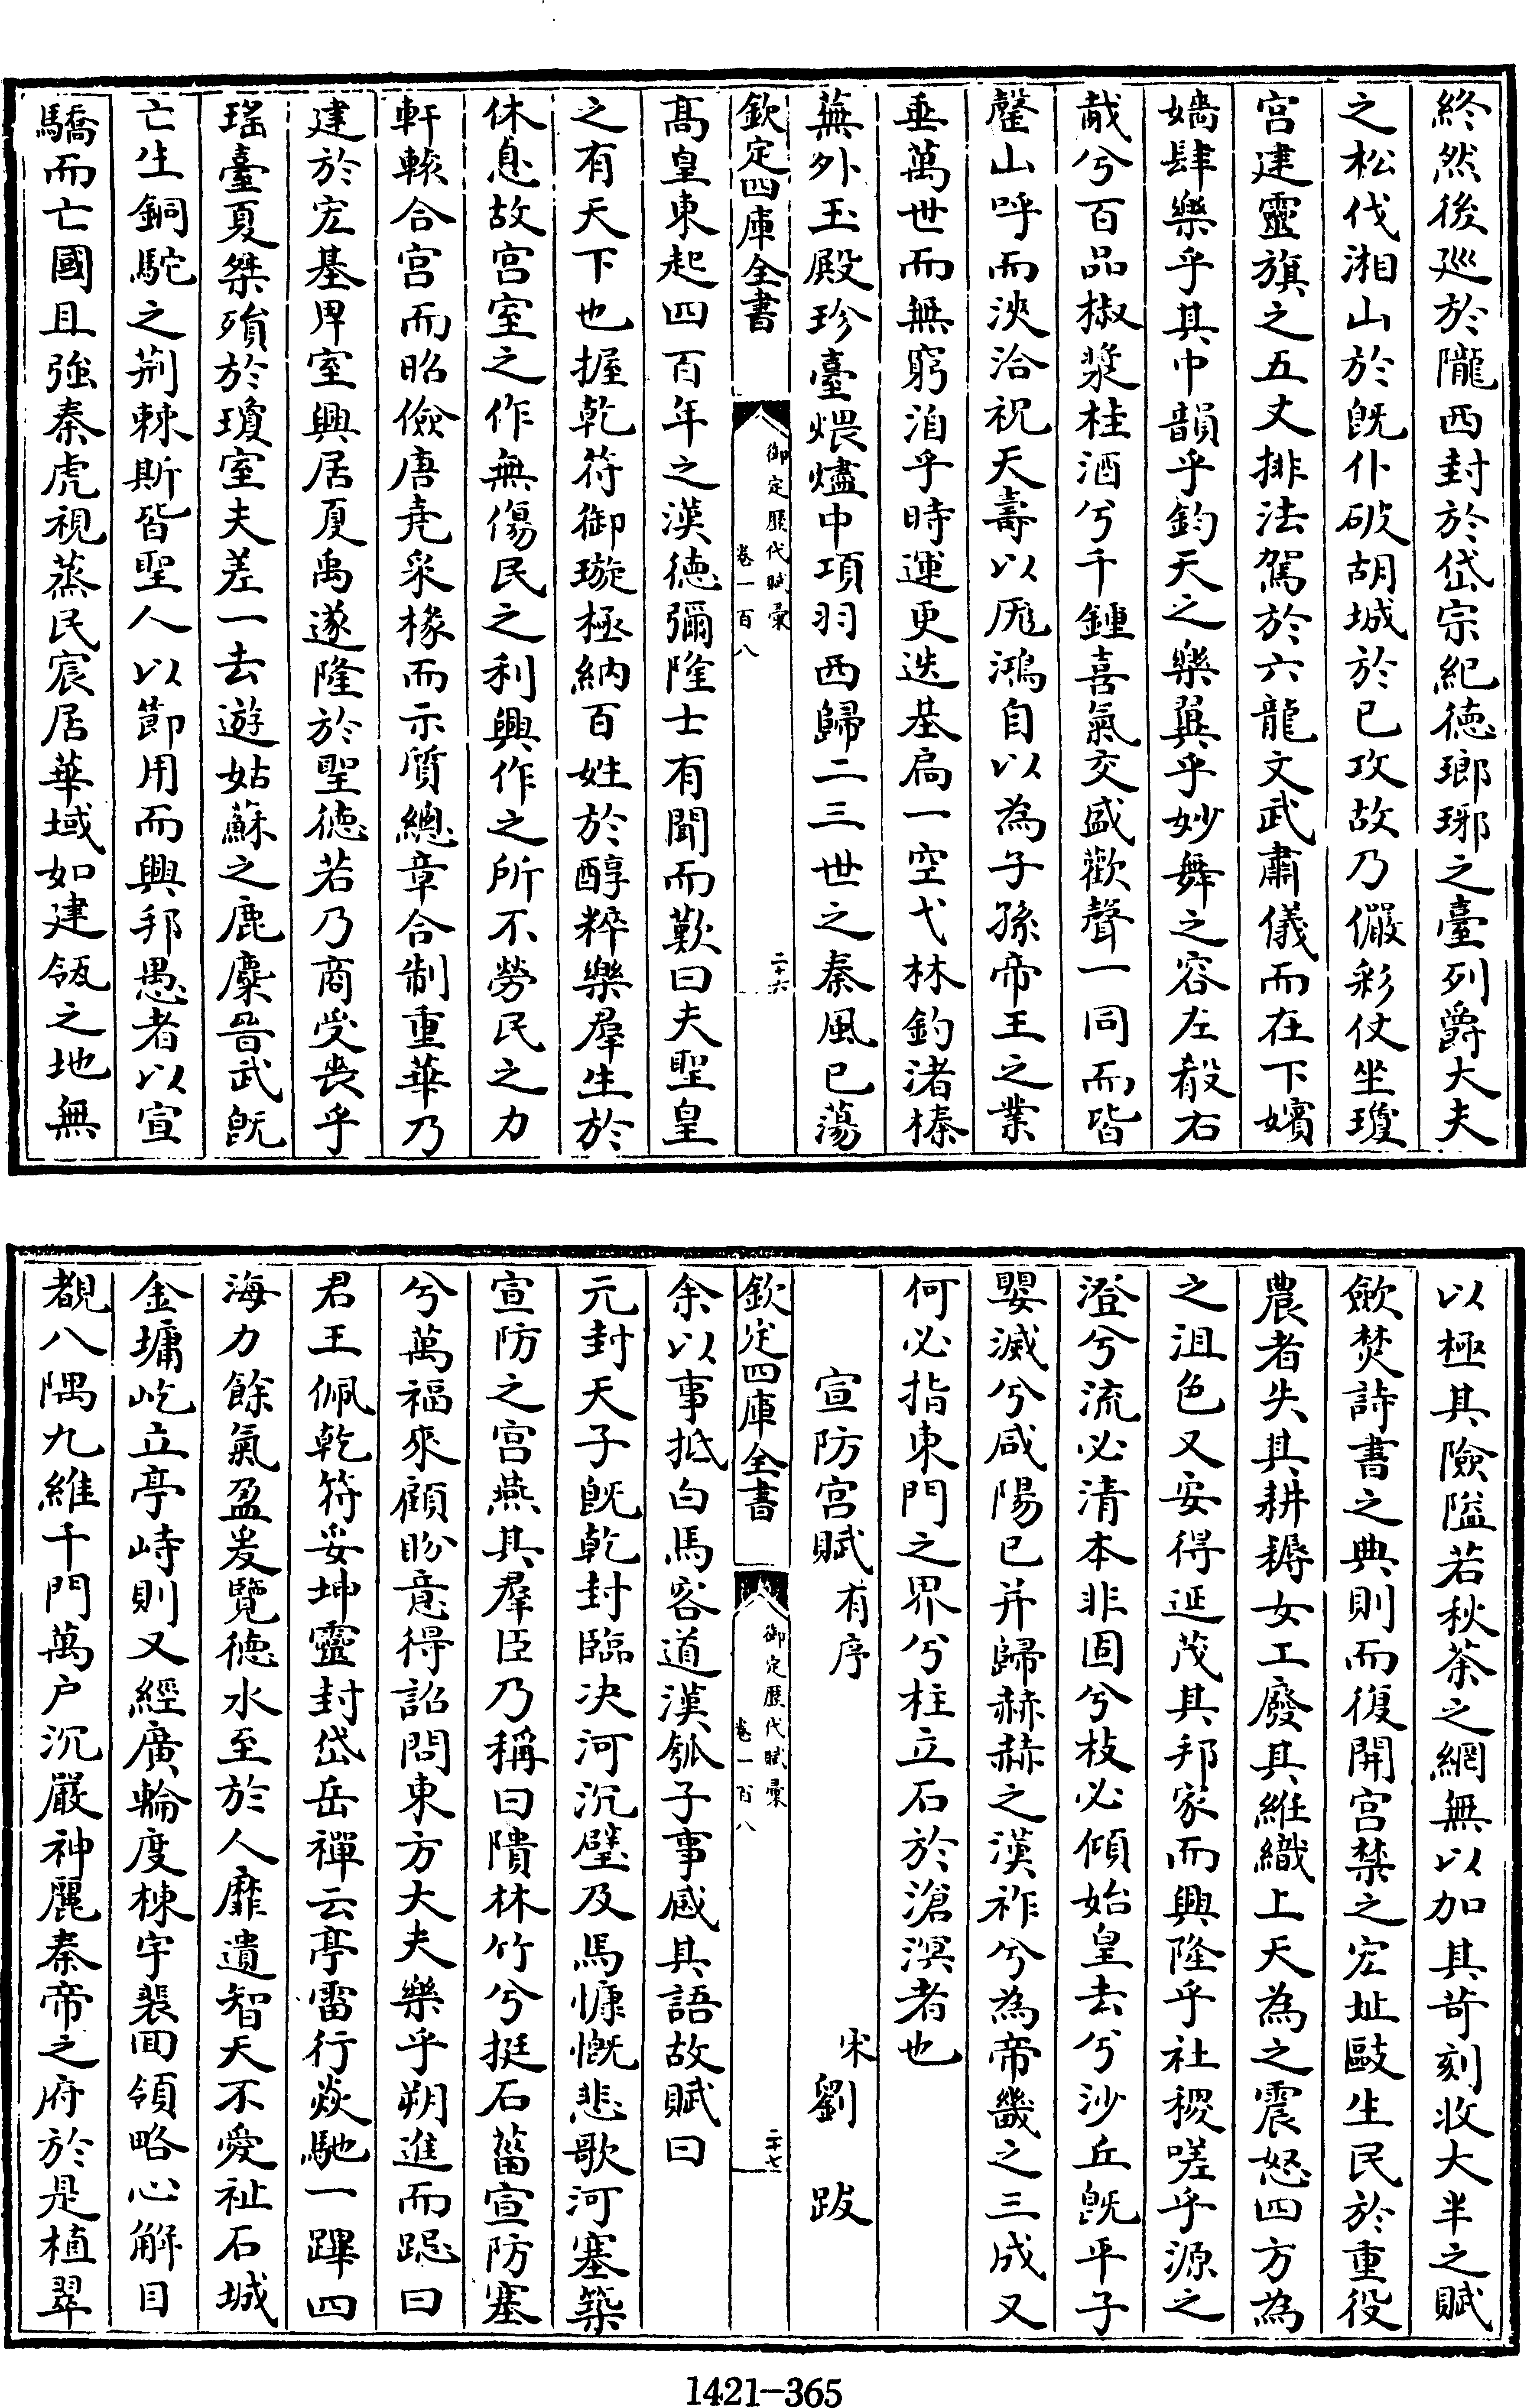 終然後廵於隴西封於岱宗紀徳瑯琊之臺列爵大夫
之松伐湘山於旣仆破胡城於已攻故乃儼彩仗坐瓊
宫建靈旗之五丈排法駕於六龍文武肅儀而在下嬪
嬙肆樂乎其中韻乎鈞天之樂㢲乎妙舞之容左殽右
胾兮百品椒漿桂酒兮千鍾喜氣交盛歡聲一同而皆
罄山呼而浹洽祝天壽以厖鴻自以為子孫帝王之業
垂萬世而無窮洎乎時運更迭基扃一空弋林釣渚榛
蕪外玉殿珍臺煨燼中項羽西歸二三世之秦風已蕩
欽定四庫全書
御定歷代賦彙
卷一百八
二十六
髙皇東起四百年之漢徳彌隆士有聞而歎曰夫聖皇
之有天下也握乾符御璇極納百姓於醇粹樂羣生於
休息故宫室之作無傷民之利興作之所不勞民之力
軒轅合宫而昭儉唐堯采椽而示質總章合制重華乃
建於宏基卑室興居夏禹遂隆於聖徳若乃商受喪乎
瑤臺夏桀殞於瓊室夫差一去遊姑蘇之鹿麋晉武旣
亡生銅駝之荆棘斯皆聖人以節用而興邦愚者以宣
驕而亡國且強秦虎視蒸民宸居華域如建瓴之地無
以極其險隘若秋荼之網無以加其苛刻收大半之賦
歛焚詩書之典則而復開宫禁之宏址毆生民於重役
農者失其耕耨女工廢其維織上天為之震怒四方為
之沮色又安得延茂其邦家而興隆乎社稷嗟乎源之
澄兮流必清本非固兮枝必傾始皇去兮沙丘旣平子
嬰滅兮咸陽已并歸赫赫之漢祚兮為帝畿之三成又
何必指東門之界兮柱立石於滄溟者也
宣防宫賦有序
宋劉跋
欽定四庫全書
御定歷代賦彙
卷一百八
二十七
余以事抵白馬客道漢瓠子事感其語故賦曰
元封天子旣乾封臨決河沉璧及馬慷慨悲歌河塞築
宣防之宫燕其羣臣乃稱曰隤林竹兮挺石菑宣防塞
兮萬福來顧盼意得詔問東方大夫樂乎朔進而跽曰
君王佩乾符妥坤靈封岱岳禪云亭雷行焱馳一蹕四
海力餘氣盈爰覽徳水至於人靡遺智天不愛祉石城
金墉屹立亭峙則又經廣輪度棟宇裴回領略心解目
覩八隅九維千門萬户沉嚴神麗秦帝之府於是植翠
1421-365